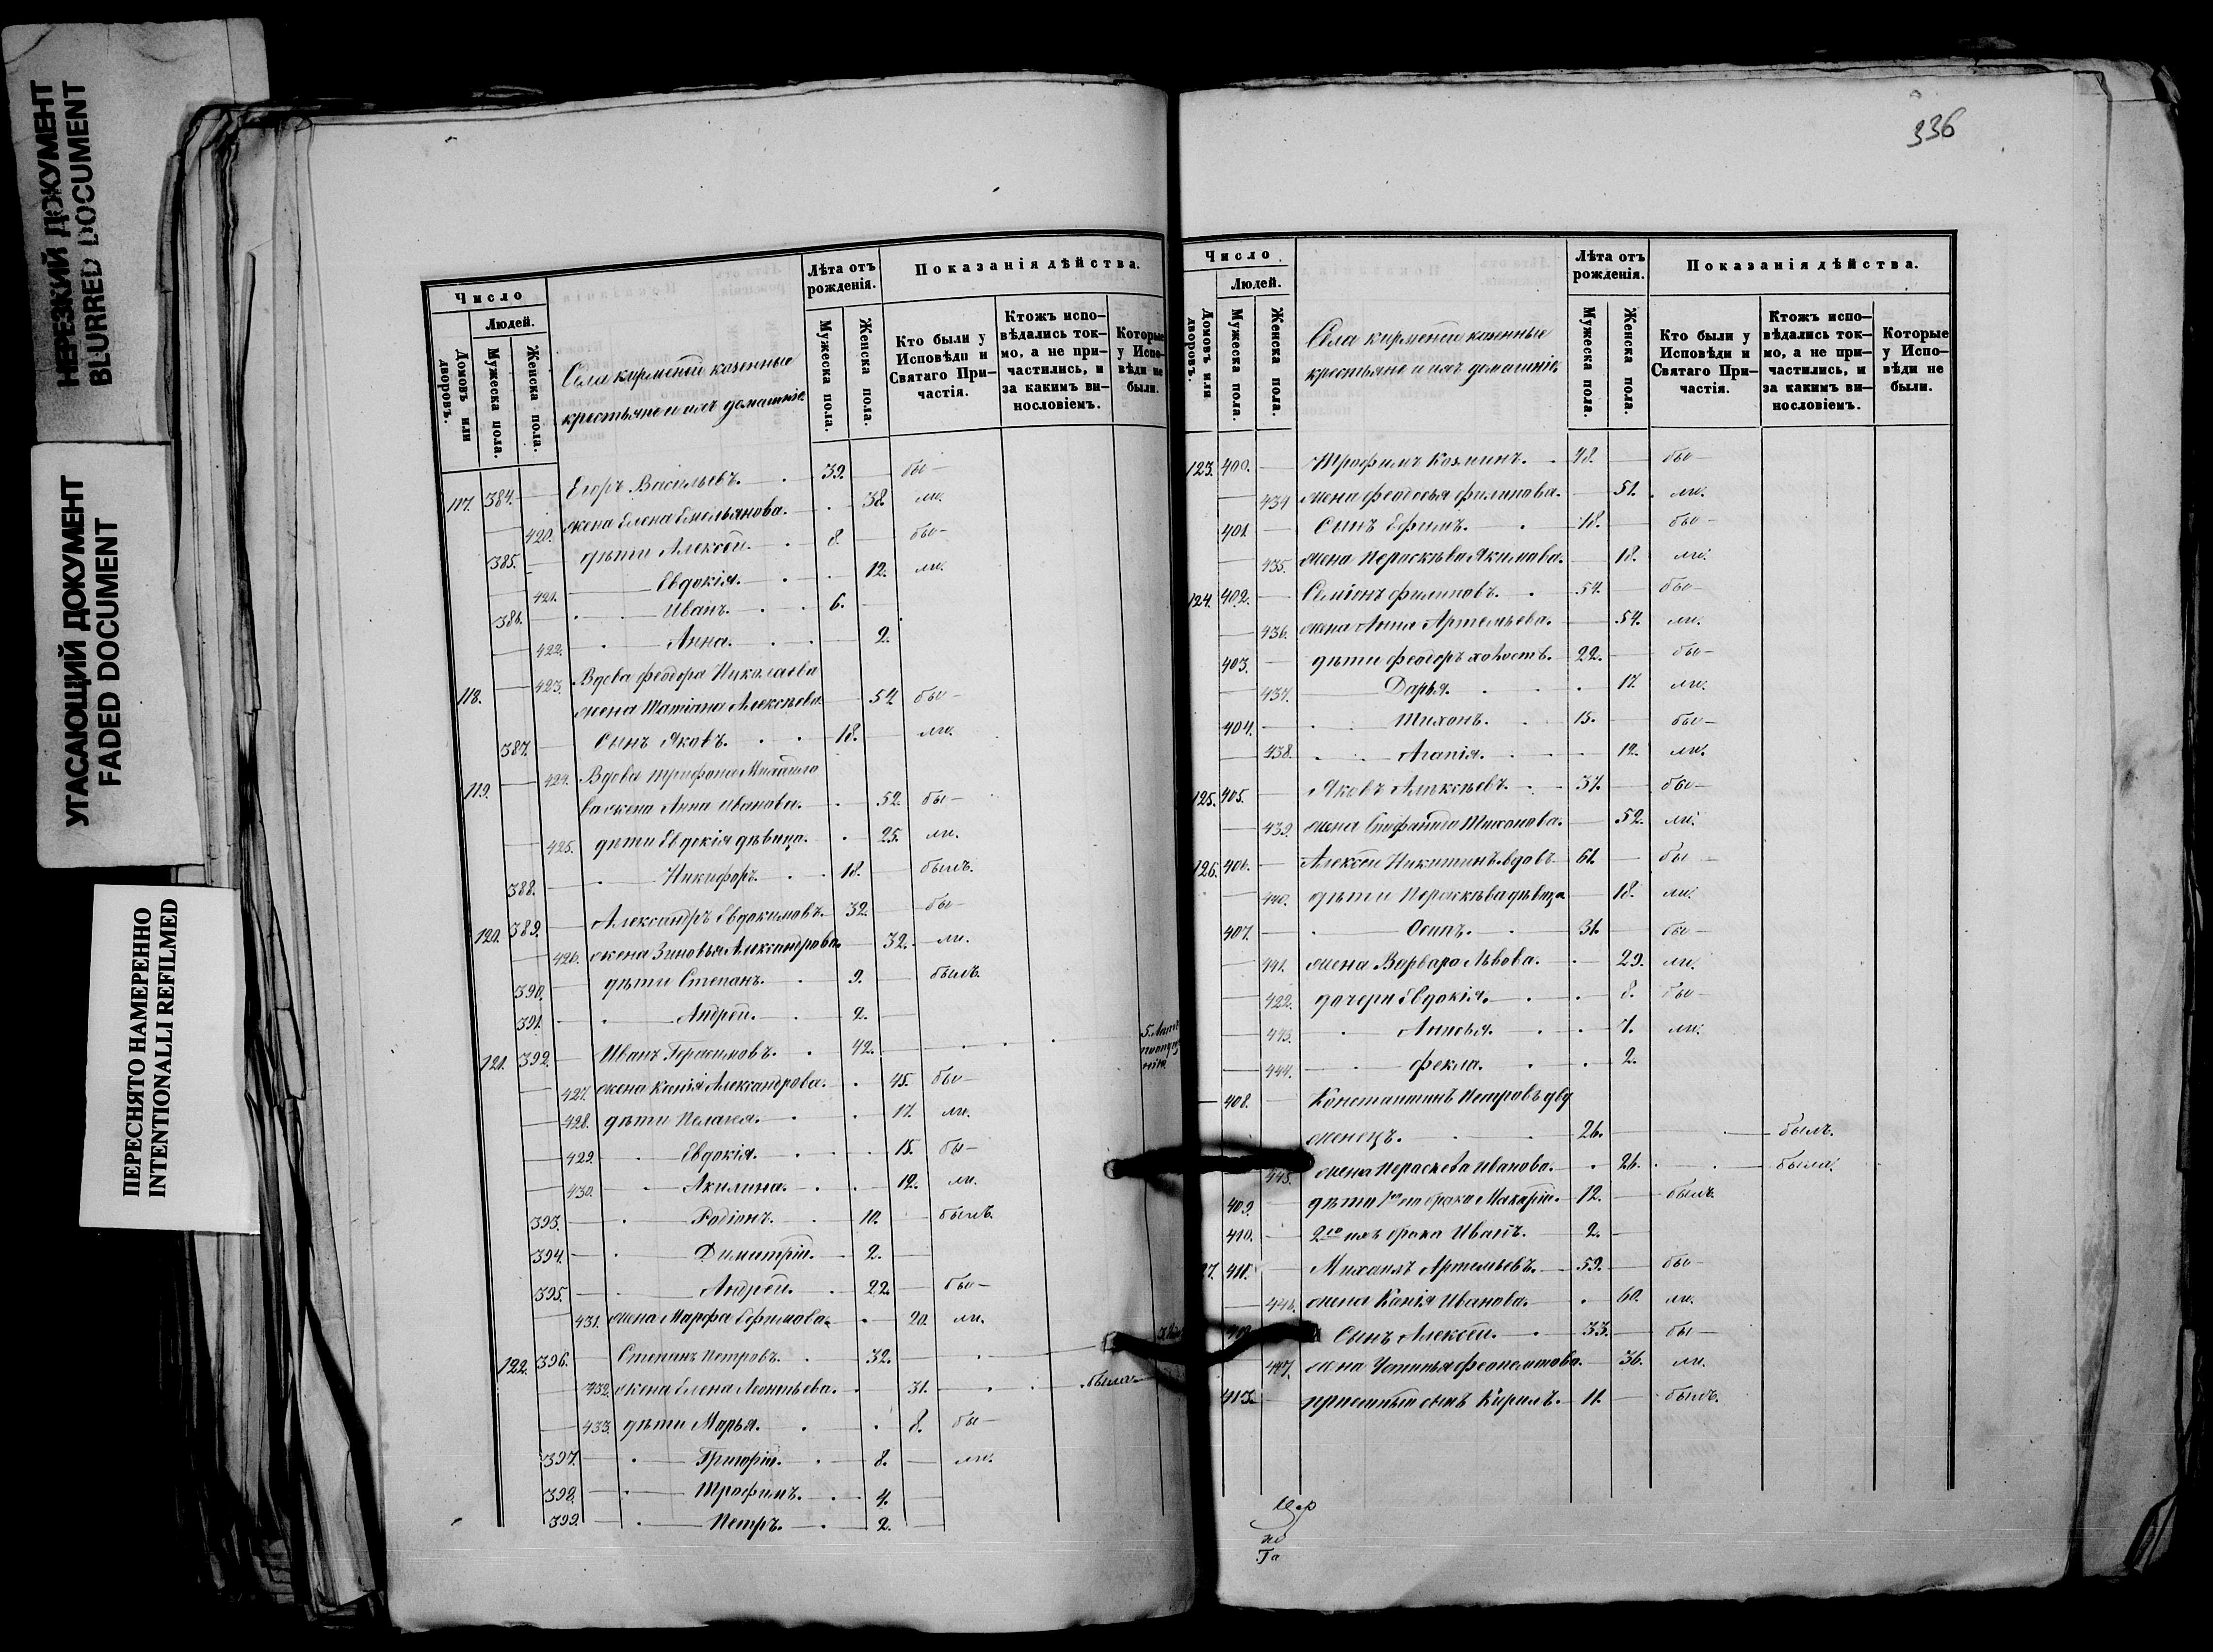 НЕРЕЗКИЙ ДОКУМЕНТ
BLURRED DOCUMENT
УГАСАЮЩИЙ ДОКУМЕНТ
FADED DOCUMENT
ПЕРЕСНЯТО НАМЕРЕННО
INTENTIONALLI REFILMED
Число
Людей.
Домовъ или дворовъ.
Мужеска пола.
Женска пола.
Села кирмети казенные
крестьяне и ихъ домашніе
Лѣта отъ рожденія.
Мужеска пола.
Женска пола.
Показанія дѣйства.
Кто были у Исповѣди и Святаго Причастія.
Ктожъ исповѣдались токмо, а не причастились, и за какимъ винословіемъ.
Которые у Исповѣди не были.
117. 384. Егоръ Васильевъ. 39. бы
420. жена Елена Емельянова. 38. ли.
385. дѣти Алексѣй. 8. бы
421. Евдокія. 12. ли.
386. Иванъ. 6.
422. Анна. 2.
118. 423. Вдова Феодора Николаева
жена Татіана Алексѣева 54 бы
387. Сынъ Яковъ. 18. ли.
119. 424. Вдова Трифона Михайло
ва жена Анна Иванова. 52. бы
425. дѣти Евдокія дѣвица. 25. ли.
388. Никифоръ. 18. былъ.
120. 389. Александръ Евдокимовъ. 32. бы
426. жена Зиновья Александрова. 32. ли.
390. дѣти Степанъ. 9. былъ.
391. Андрей. 2.
121. 392. Иванъ Герасимовъ. 42.
427. жена Ксенія Александрова. 45. бы
428. дѣти Пелагея. 17. ли.
429. Евдокія. 15. бы
430. Акилина. 12. ли.
393. Родіонъ. 10. былъ.
394. Димитрій. 2.
395. Андрей. 22. бы
431. жена Марфа Ефимова. 20. ли.
122. 396. Степанъ Петровъ. 32.
432. жена Елена Леонтьева. 31. была
433. дѣти Марья. 8. бы
397. Григорій. 8. ли.
398. Трофимъ. 4.
399. Петръ. 2.
336
Число
Людей.
Домовъ или дворовъ.
Мужеска пола.
Женска пола.
Села кирмети казенные
крестьяне и ихъ домашніе
Лѣта отъ рожденія.
Мужеска пола.
Женска пола.
Показанія дѣйства.
Кто были у Исповѣди и Святаго Причастія.
Ктожъ исповѣдались токмо, а не причастились, и за какимъ винословіемъ.
Которые у Исповѣди не были.
123. 400. Трофимъ Козминъ. 48. бы
434 жена Феодосья Филипова. 51. ли.
401. Сынъ Ефимъ. 18. бы
435. жена Пераскѣва Якимова. 18. ли.
124. 402. Семіонъ Филиповъ. 54. бы
436. жена Анна Артемьева. 54. ли.
403. дѣти Феодоръ холостъ. 22. бы
437. Дарья. 17. ли.
404. Тихонъ. 15. бы
438. Агапія. 12. ли.
125. 405. Яковъ Алексѣевъ. 37. бы
439. жена Стефанида Тихонова. 52. ли.
126. 406. Алексѣй Никитинъ вдовъ 61. бы
440. дѣти Пераскѣва дѣвица 18. ли.
407. Осипъ. 31. бы
441. жена Варвара Львова. 29. ли.
422. дочери Евдокія. 8. бы
443. Анисья. 7. ли.
444. Фекла. 2.
408. Константинъ Петровъ дво
женецъ. 26. былъ.
445. жена Пераскева Иванова. 26. была.
409. дѣти 1го его брака Макарій. 12. былъ
410. 2го ихъ брака Иванъ. 2.
27. 411. Михаилъ Артемьевъ. 59. бы
446. жена Ксенія Иванова. 60. ли.
Сынъ Алексѣй. 33. бы
447. жена Устинья Феопемптова. 36. ли.
413. пріемный сынъ Кирилъ. 11. былъ.